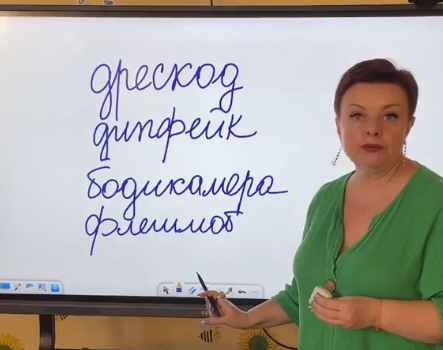 дрескод
дипфейк
бодикамера
флешмоб